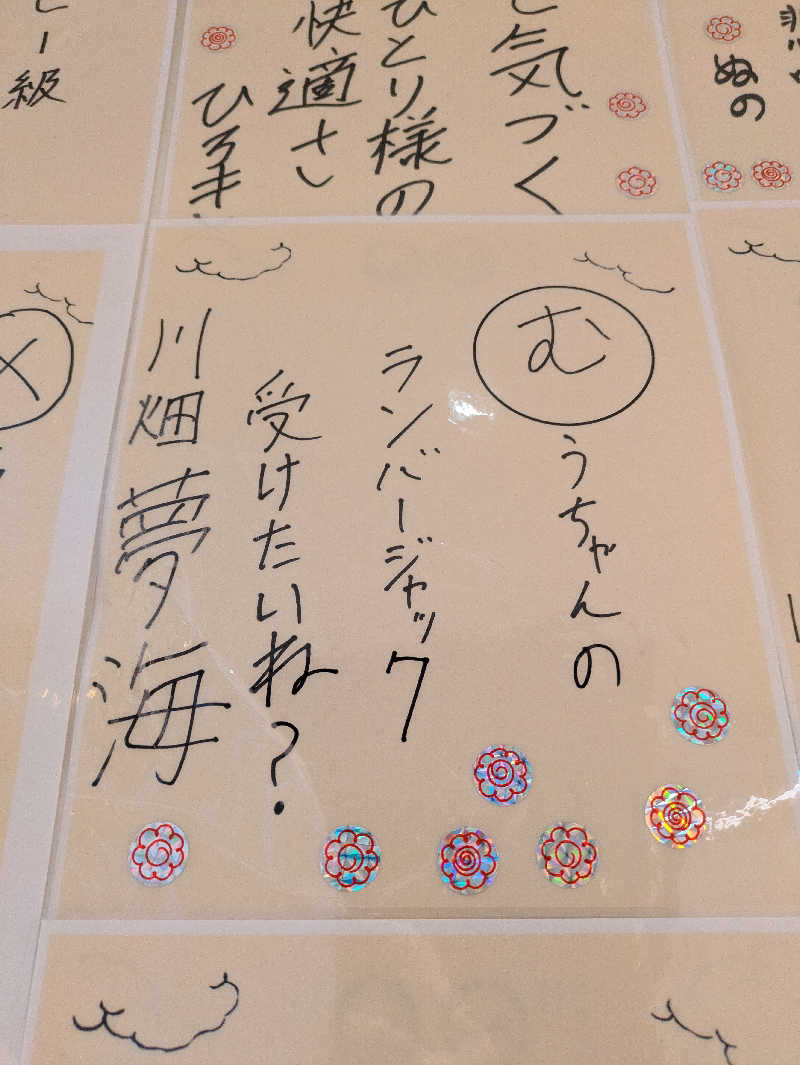 し気づく
ひとり様の
快適さ
ひろき
ぬの
ー級
む
うちゃんの
ランバージャック
受けたいね?
川畑夢海